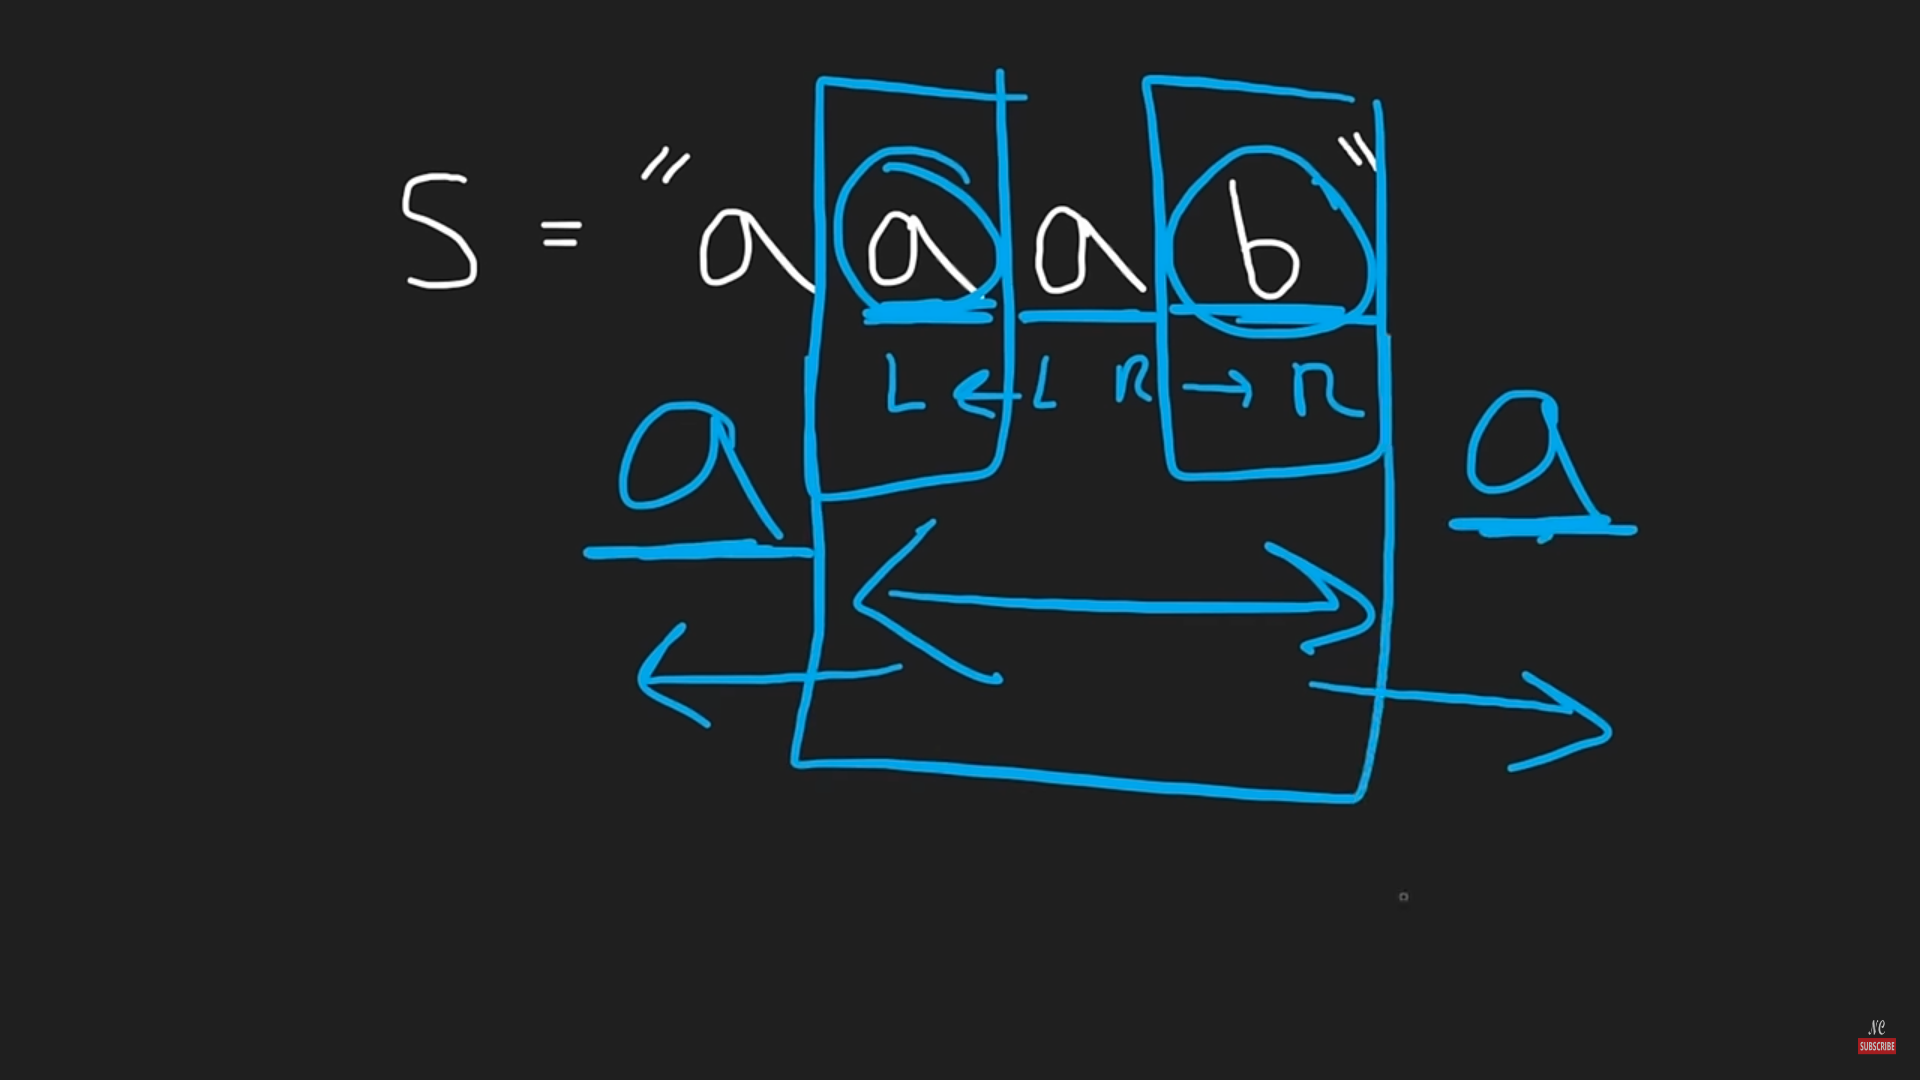 S = "aaab"
L ← L R → R
a a
NC
SUBSCRIBE